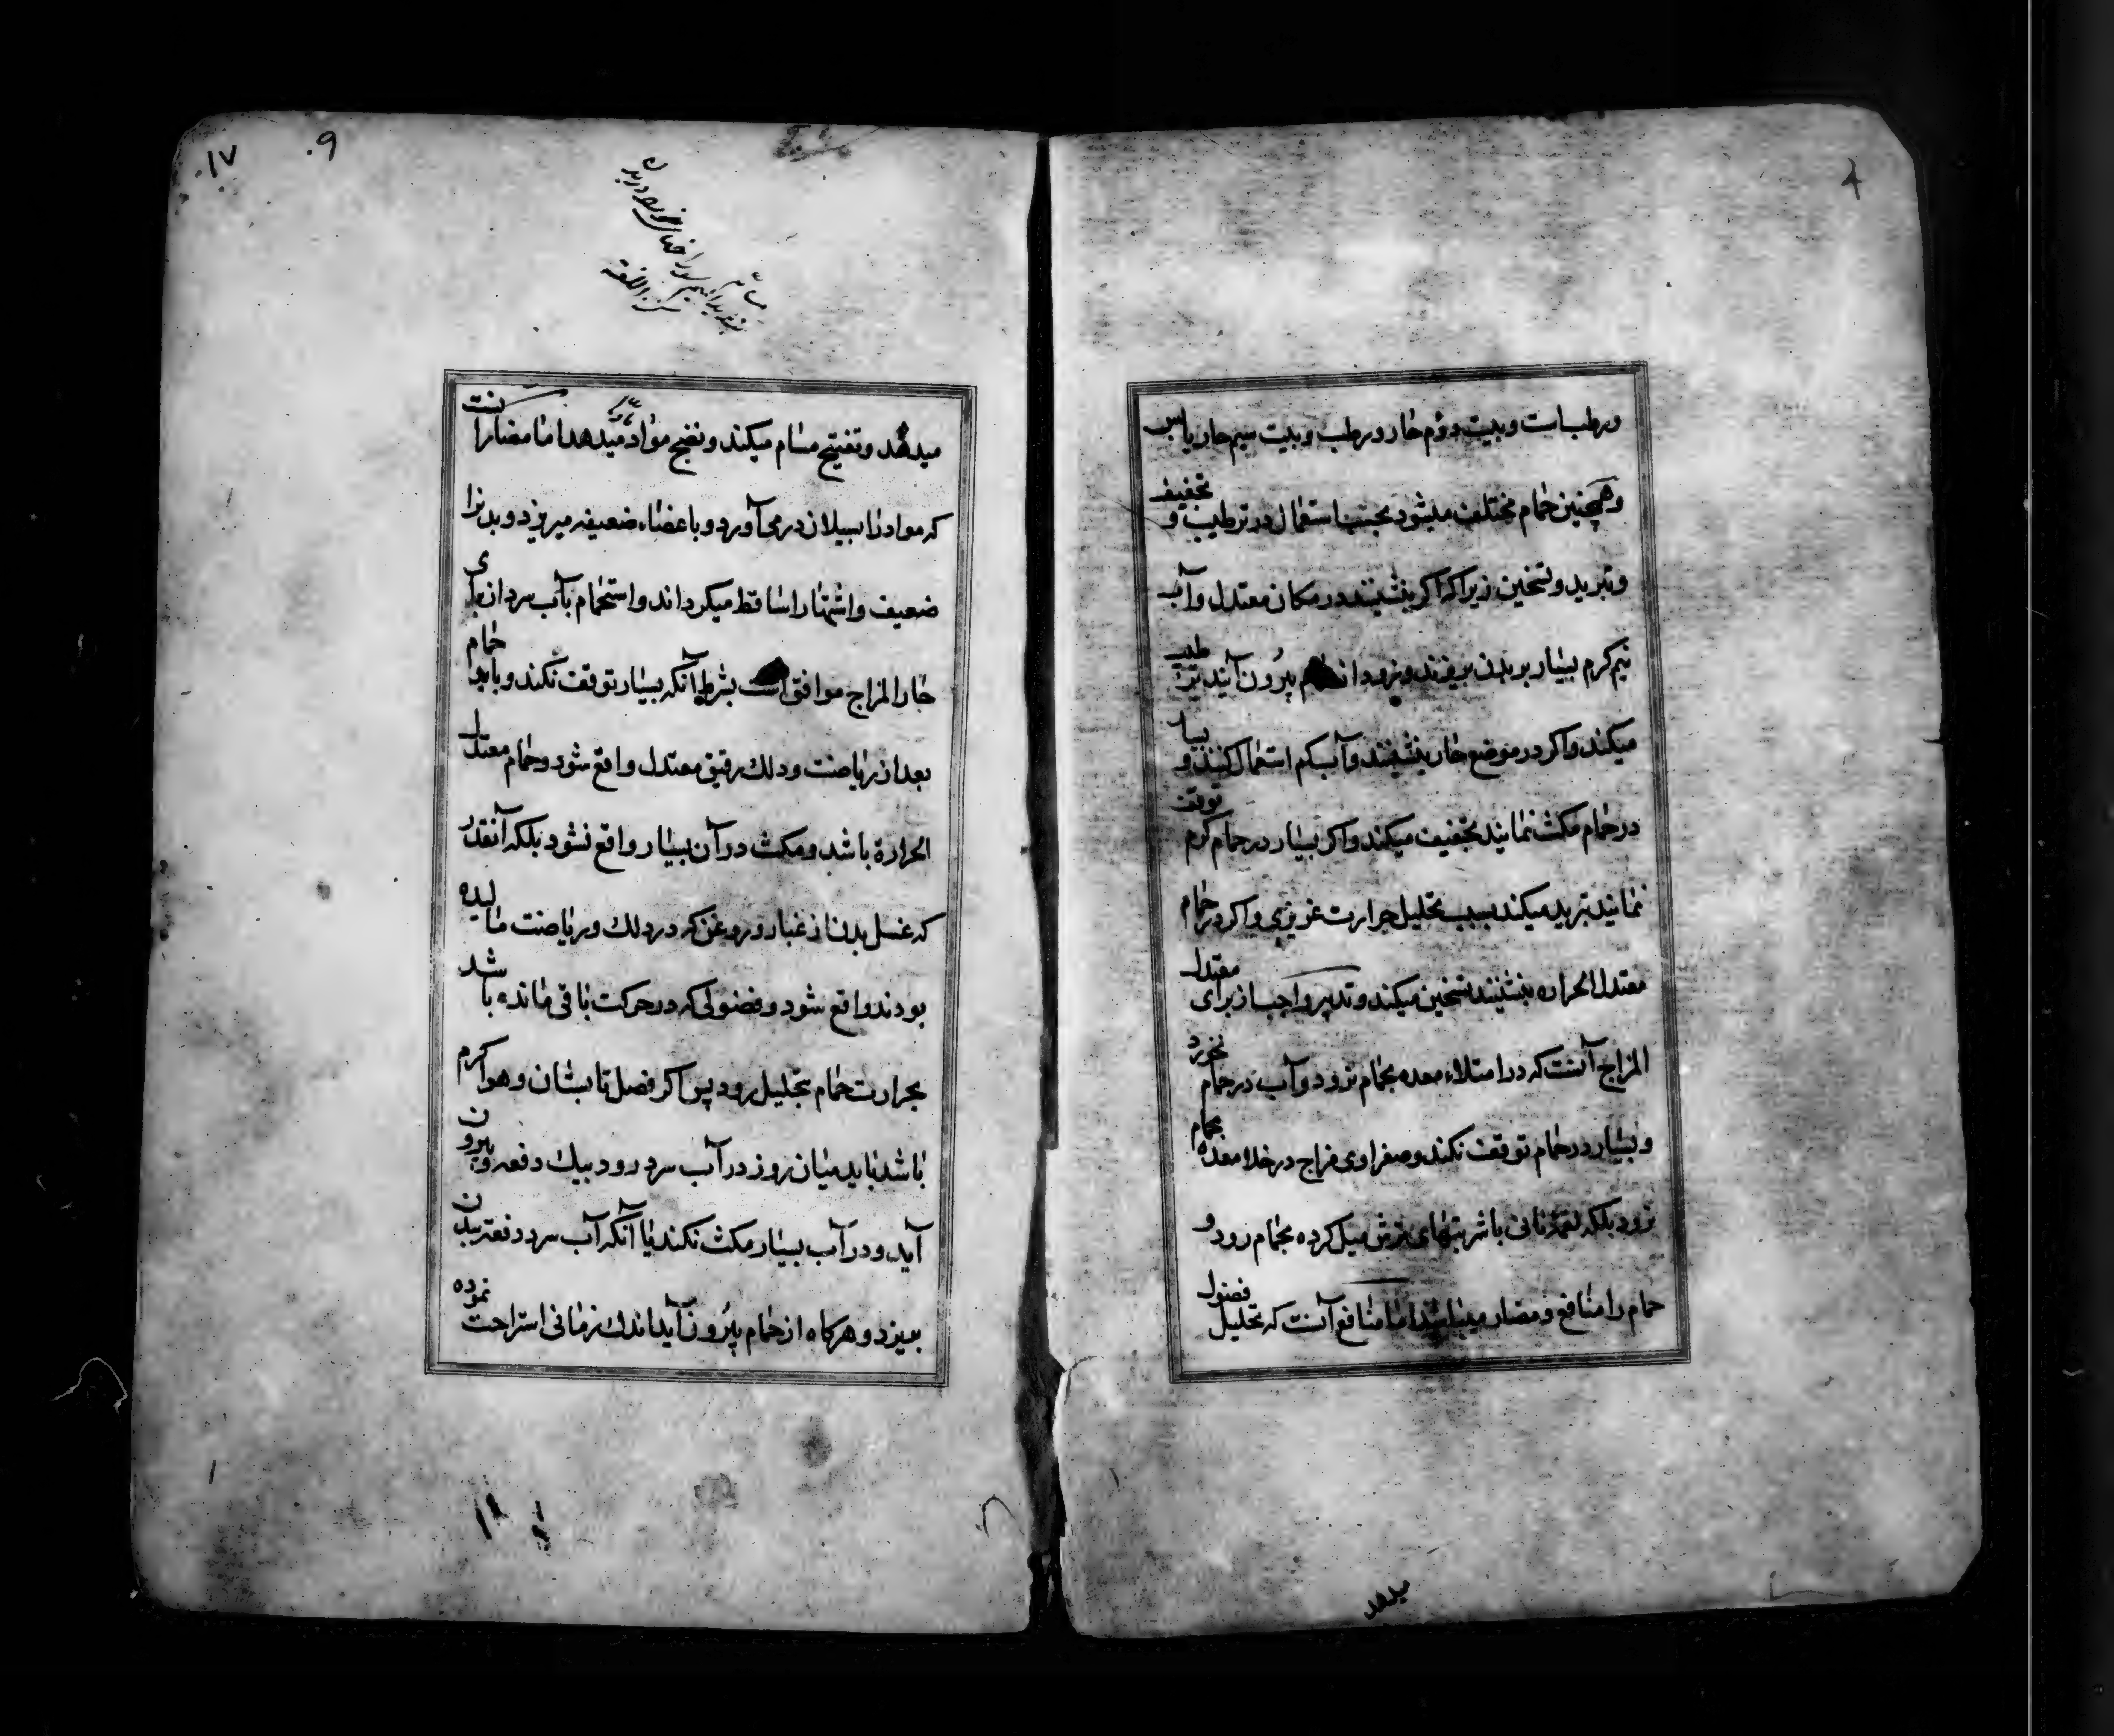 ۴
ورطب است و بیت دوم حار و رطب و بیت سیم حار یابس
و همچنین حمام مختلف میشود بحسب استعمال در ترطیب و تجفیف
و تبرید و تسخین زیرا که اکر بنشینند در مکان معتدل و آب
نیم کرم بسیار بر بدن بریزند و زود از حمام بیرون آیند ترطیب
میکند و اکر در موضع حار بنشینند و آب کم استعمال کنند و بسیار
در حمام مکث نمایند تجفیف میکند و اکر بسیار در حمام کرم توقف
نمایند تبرید میکند بسبب تحلیل حرارت غریزی و اکر در حمام
معتدل الحراره بنشینند تسخین میکند و تدبیر واجب از برای معتدل
المزاج آنست که در امتلاء معده بحمام نرود و آب در حمام نخورد
و بسیار در حمام توقف نکند و صفراوی مزاج در خلا معده بحمام
نرود بلکه لقمهٔ نانی با شربتهای ترش میل کرده بحمام رود و
حمام را منافع و مضار میباشد اما منافع آنست که تحلیل فضول
میدهد
۱۷ ۹
کنز اللغة
میدهد و تفتیح مسام میکند و نضج مواد میدهد اما مضار آنست
که مواد را بسیلان در می آورد و باعضاء ضعیفه میریزد و بدنرا
ضعیف و اشتها را ساقط میکرداند و استحمام بآب سرد از برای
حار المزاج موافق است بشرط آنکه بسیار توقف نکند و باید حمام
بعد از ریاضت و دلک رقیق معتدل واقع شود و حمام معتدل
الحرارة باشد و مکث در آن بسیار واقع نشود بلکه آنقدر
که غسل بدن از غبار و روغن که در دلک و ریاضت مالیده
بودند واقع شود و فضولی که در حرکت باقی مانده باشد
بحرارت حمام بتحلیل رود پس اکر فصل تابستان و هوا کرم
باشد باید میان روز در آب سرد رود بیک دفعه و بیرون
آید و در آب بسیار مکث نکند یا آنکه آب سرد دفعة ببدن
بریزد و هرکاه از حمام بیرون آید اندک زمانی استراحت نموده